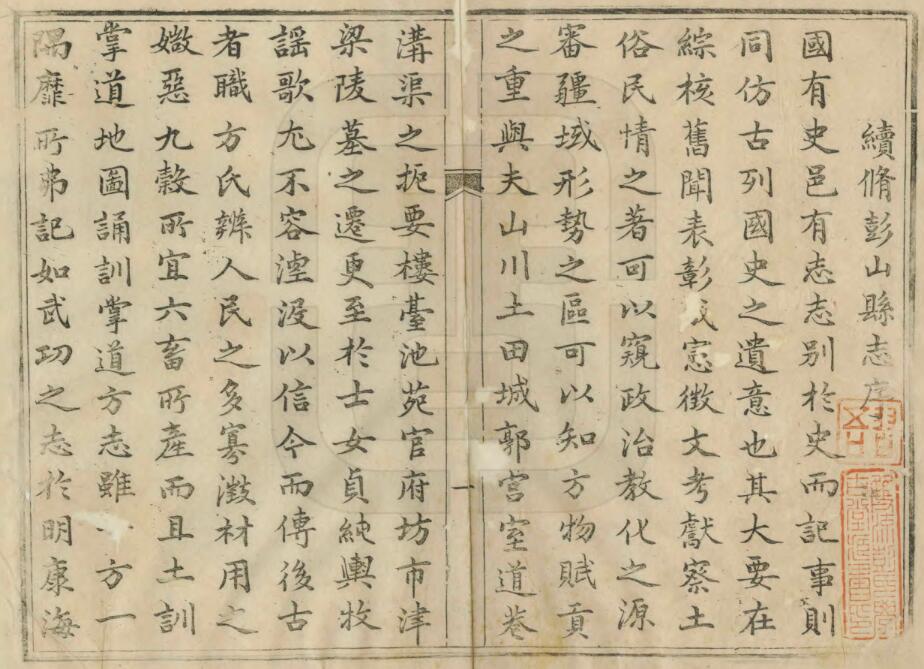 續脩彭山縣志序
國有史邑有志志別於史而記事則
同仿古列國史之遺意也其大要在
綜核舊聞表彰成憲徴文考獻察土
俗民情之著可以窺政治教化之源
審疆域形勢之區可以知方物賦貢
之重與夫山川土田城郭宮室道巷
溝渠之扼要樓臺池苑官府坊市津
梁陵墓之遷更至於士女貞純輿牧
謡歌尤不容湮没以信今而傳後古
者職方氏辨人民之多寡澂材用之
媺惡九穀所宜六畜所產而且土訓
掌道地圖誦訓掌道方志雖一方一
隅靡所弗記如武功之志於明康海
一